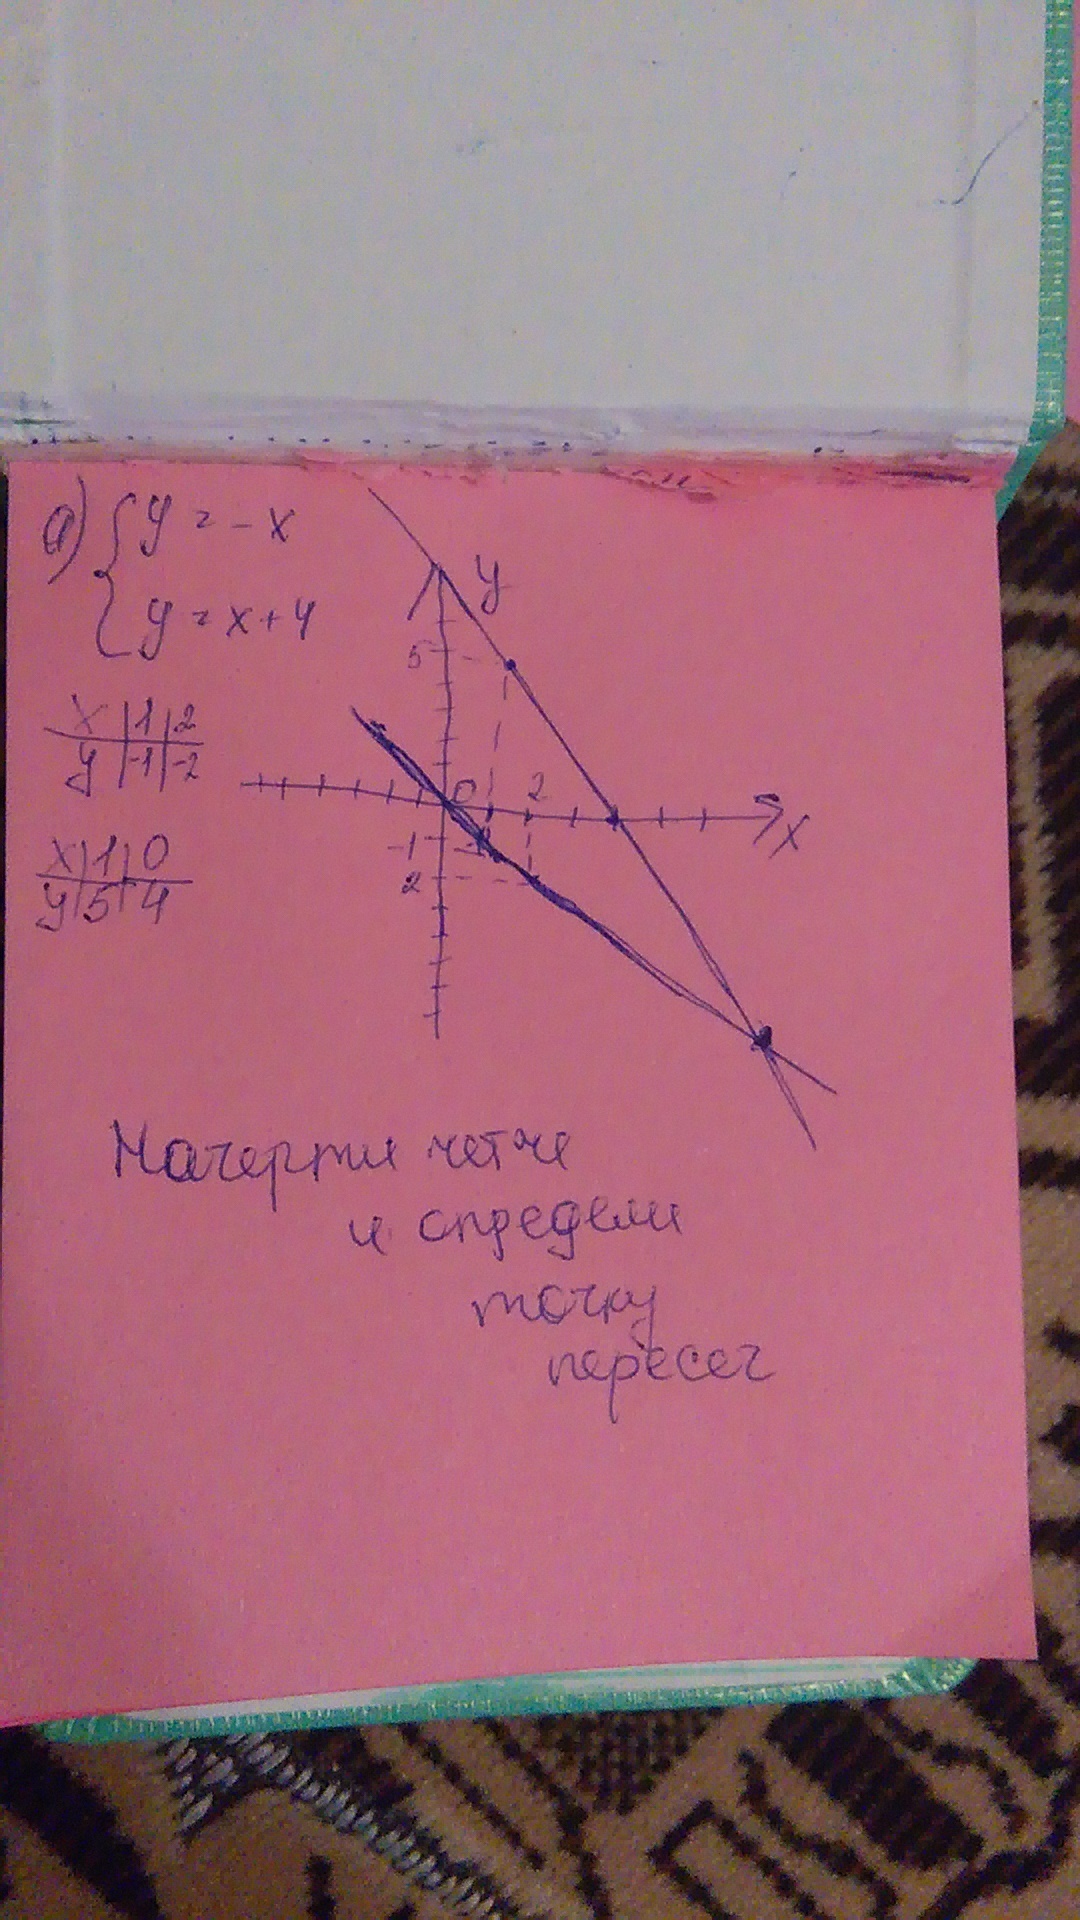 а) { y = -x
y = x+4
y
5
x | 1 | 2
y | -1 | -2
0 2
x
-1
2
x | 1 | 0
y | 5 | 4
Начерти четче
и определи
точку
пересеч